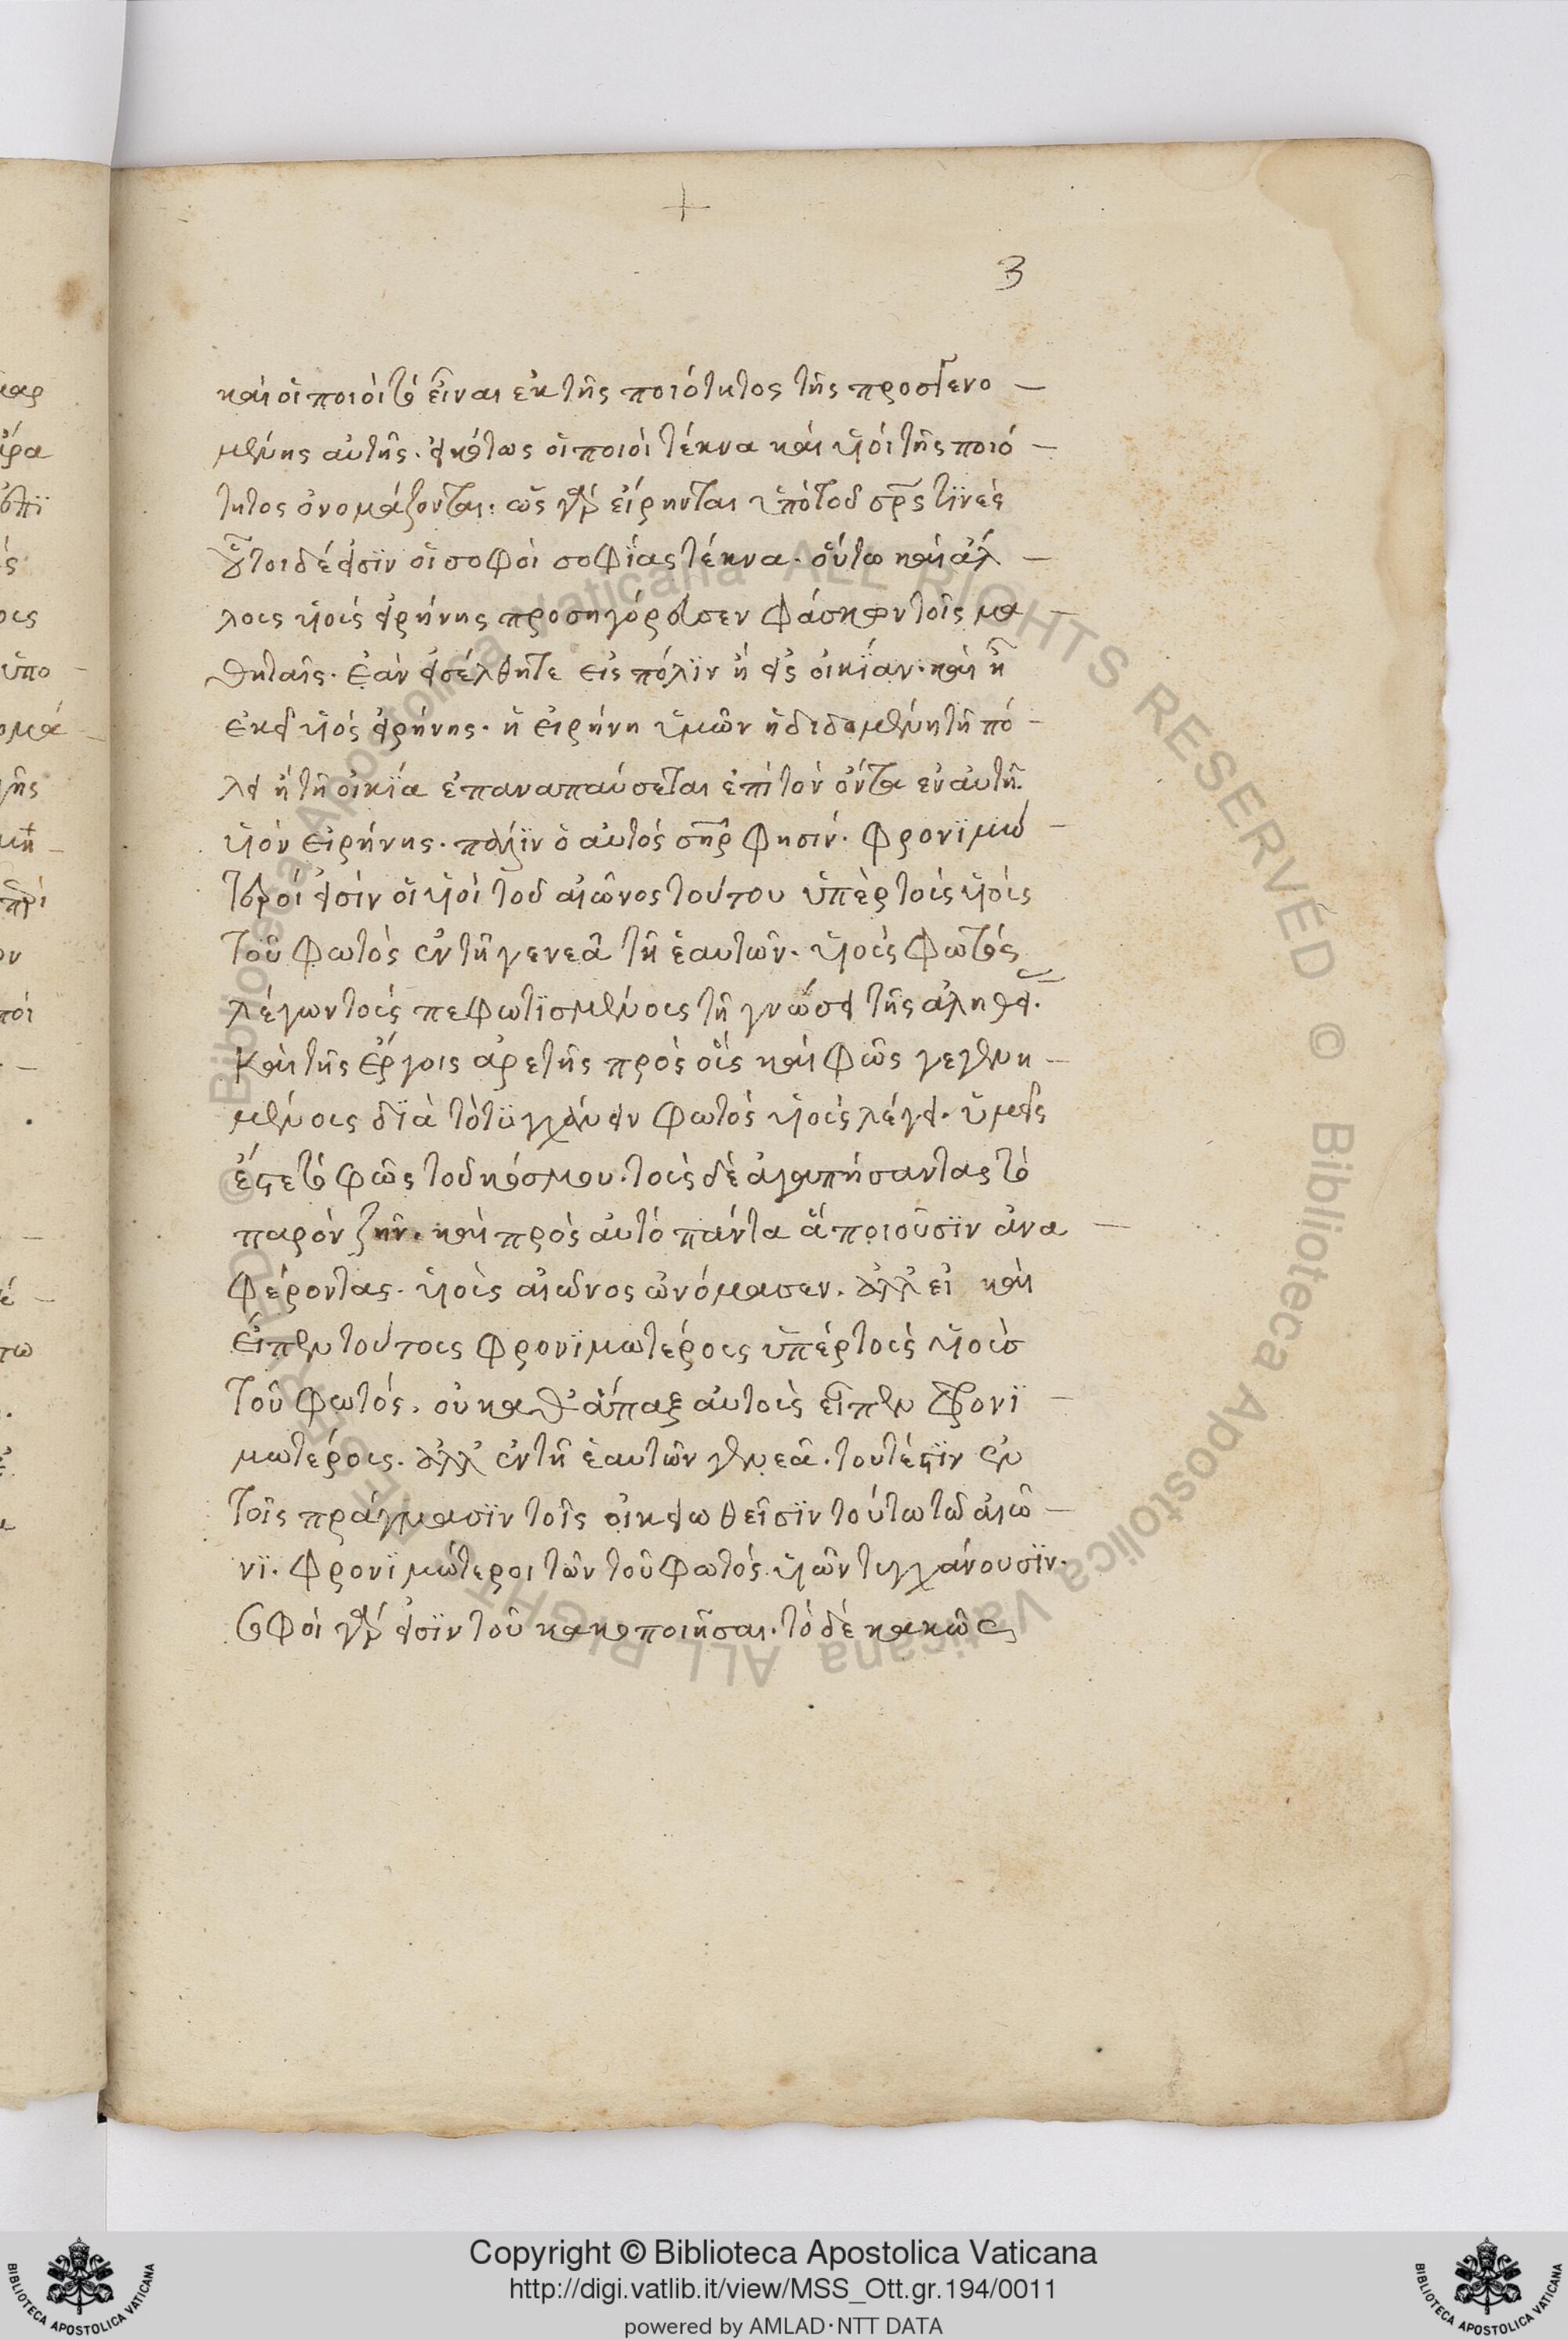 3
καὶ οἱ ποιοὶ τὸ εἶναι ἐκ τῆς ποιότητος τῆς προσγενο-
μένης αὐτῆς. εἰκότως οἱ ποιοὶ τέκνα καὶ υἱοὶ τῆς ποιό-
τητος ὀνομάζονται. ὡς γὰρ εἴρηνται ὑπὸ τοῦ σρς τϊνὲς
οὗτοι δέ εἰσϊν οἱ σοφοὶ σοφΐας τέκνα. οὕτω καὶ ἀλ-
λους υἱοὺς εἰρήνης προσηγόρευσεν φάσκων τοῖς μα-
θηταῖς. ἐὰν εἰσέλθητε εἰς πόλϊν ἢ εἰς οἰκΐαν. καὶ ἦ
ἐκεῖ υἱὸς εἰρήνης. ἡ εἰρήνη ὑμῶν ἡ διδομένη τῆ πό-
λει ἢ τῆ οἰκΐα ἐπαναπαύσεται ἐπὶ τὸν ὄντα ἐν αὐτῆ.
υἱὸν εἰρήνης. πάλϊν ὁ αὐτὸς σηρ φησιν. φρονϊμώ-
τεροί εἰσὶν οἱ υἱοὶ τοῦ αἰῶνος τούτου ὑπὲρ τοὺς υἱοὺς
τοῦ φωτὸς ἐν τῆ γενεᾶ τῆ ἑαυτῶν. υἱοὺς φωτὸς
λέγων τοὺς πεφωτϊσμένους τῆ γνώσει τῆς ἀληθεί.
καὶ τῆς ἔργοις ἀρετῆς πρὸς οἷς καὶ φῶς γεγενη-
μένους δϊὰ τὸ τϋγχάνειν φωτὸς υἱοὺς λέγει. ὑμεῖς
ἐστὲ τὸ φῶς τοῦ κόσμου. τοὺς δὲ ἀγαπήσαντας τὸ
παρὸν ζῆν. καὶ πρὸς αὐτὸ πάντα ἃ ποιοῦσϊν ἀνα-
φέροντας. υἱοὺς αἰῶνος ὠνόμασεν. ἀλλ' εἰ καὶ
εἶπεν τούτους φρονϊμωτέρους ὑπὲρ τοὺς υἱοὺσ
τοῦ φωτός. οὐ καθάπαξ αὐτοὺς εἶπεν φρονϊ-
μωτέρους. ἀλλ' ἐν τῆ ἑαυτῶν γενεᾶ. τουτέστϊν ἐν
τοῖς πράγμασϊν τοῖς οἰκειωθεῖσϊν τούτω τῶ αἰῶ-
νϊ. φρονϊμώτεροι τῶν τοῦ φωτὸς υἱῶν τυγχάνουσϊν.
σοφοὶ γάρ εἰσϊν τοῦ κακοποιῆσαι. τὸ δὲ κακῶς
Copyright © Biblioteca Apostolica Vaticana
http://digi.vatlib.it/view/MSS_Ott.gr.194/0011
powered by AMLAD·NTT DATA